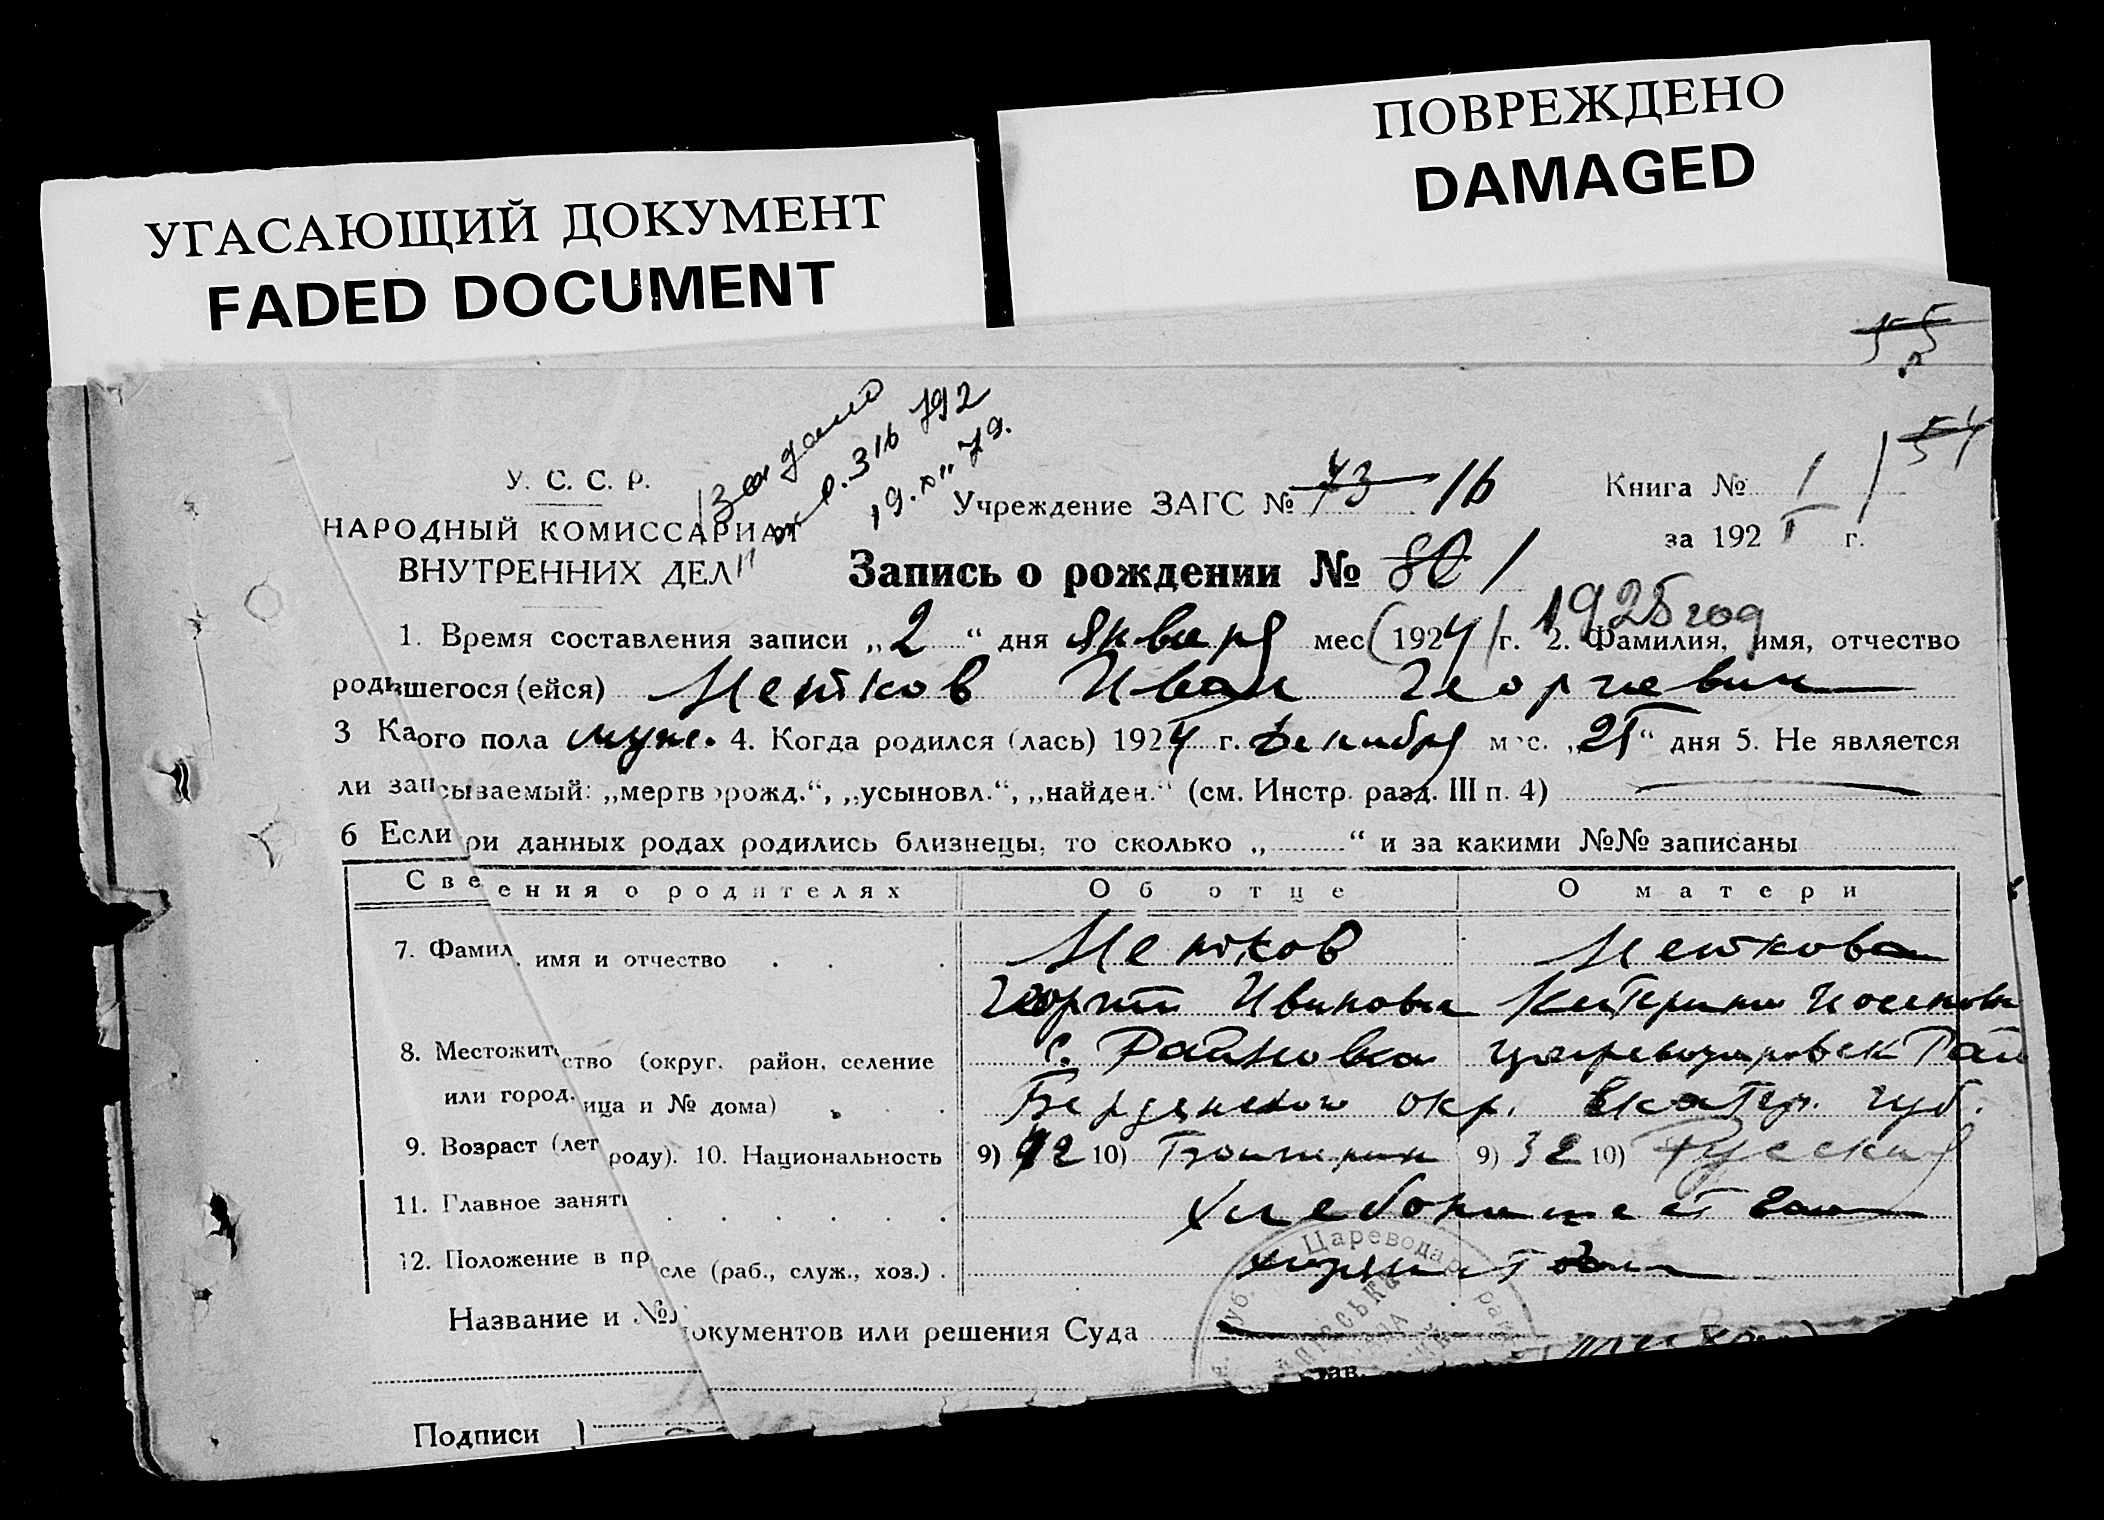 ПОВРЕЖДЕНО
DAMAGED
УГАСАЮЩИЙ ДОКУМЕНТ
FADED DOCUMENT
55
54
У. С. С. Р.
НАРОДНЫЙ КОМИССАРИАТ
ВНУТРЕННИХ ДЕЛ
р. 316 792
Учреждение ЗАГС № 73 16
Книга № 1
за 192 5 г.
Запись о рождении № 80 1
1925 год
1. Время составления записи „ 2 “ дня января мес (1924) г. 2. Фамилия, имя, отчество
родившегося (ейся) Метков Иван Георгиевич
3 Ка ого пола муж. 4. Когда родился (лась) 1924 г. Декабря мес. „25“ дня 5. Не является
ли записываемый: „мертворожд.“, „усыновл.“, „найден.“ (см. Инстр. разд. III п. 4)
6 Если ри данных родах родились близнецы, то сколько „ “ и за какими №№ записаны
Све ения о родителях Об отце О матери
7. Фамил. имя и отчество Метков Меткова
Георгий Иванович Катерина
8. Местожит ство (округ, район, селение с. Райновка Цареводаровск Рай
или город. ица и № дома) Бердянского окр. Екатер. губ.
9. Возраст (лет роду). 10. Национальность 9) 42 10) Болгарин 9) 32 10) Русская
11. Главное занят Хлебопашество
12. Положение в пр сле (раб., служ., хоз.)
Цареводар рай
Название и № документов или решения Суда
Зав.
Подписи